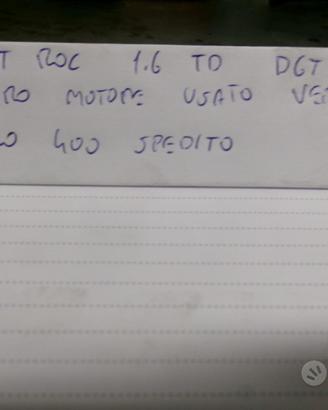 T ROC 1.6 TD DGT
RO MOTORE USATO VE
O 400 SPEDITO